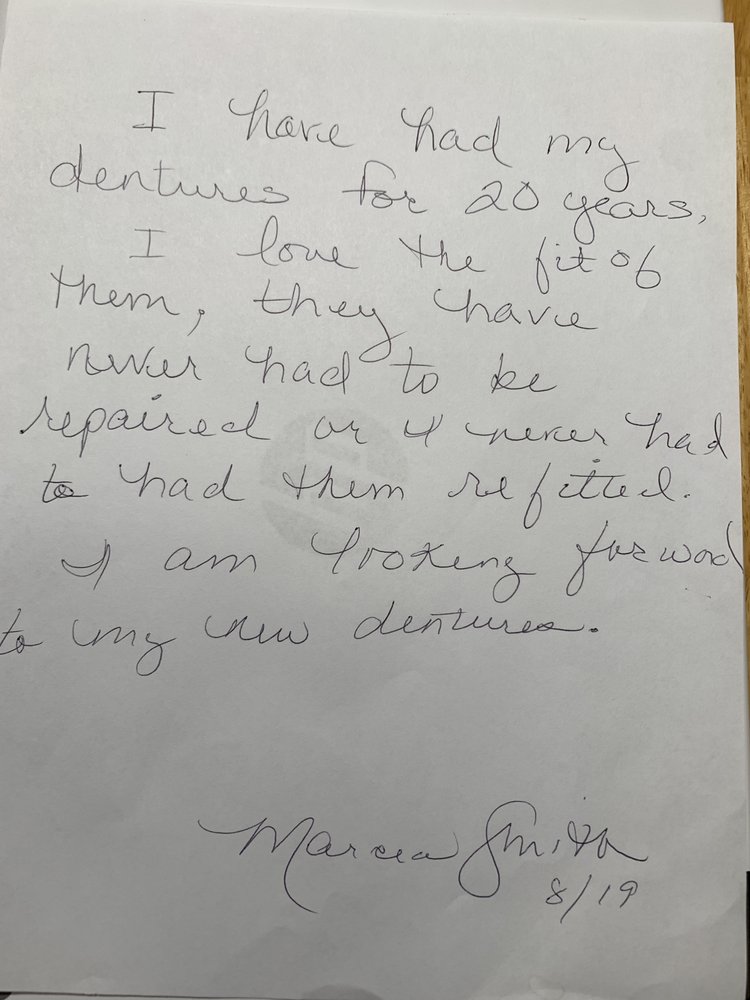 I have had my
dentures for 20 years,
I love the fit of
them, they have
never had to be
repaired or I never had
to had them refitted.
I am looking forward
to my new dentures.
Marcia Smith
8/19